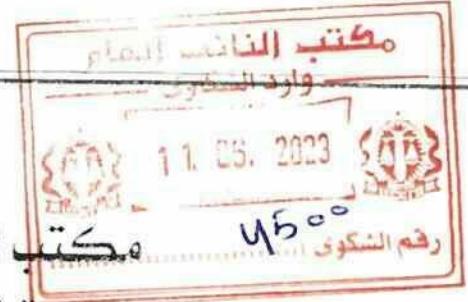 مكتب النائب العام
وارد الشكوى
11. 05. 2023
رقم الشكوى
مكتب